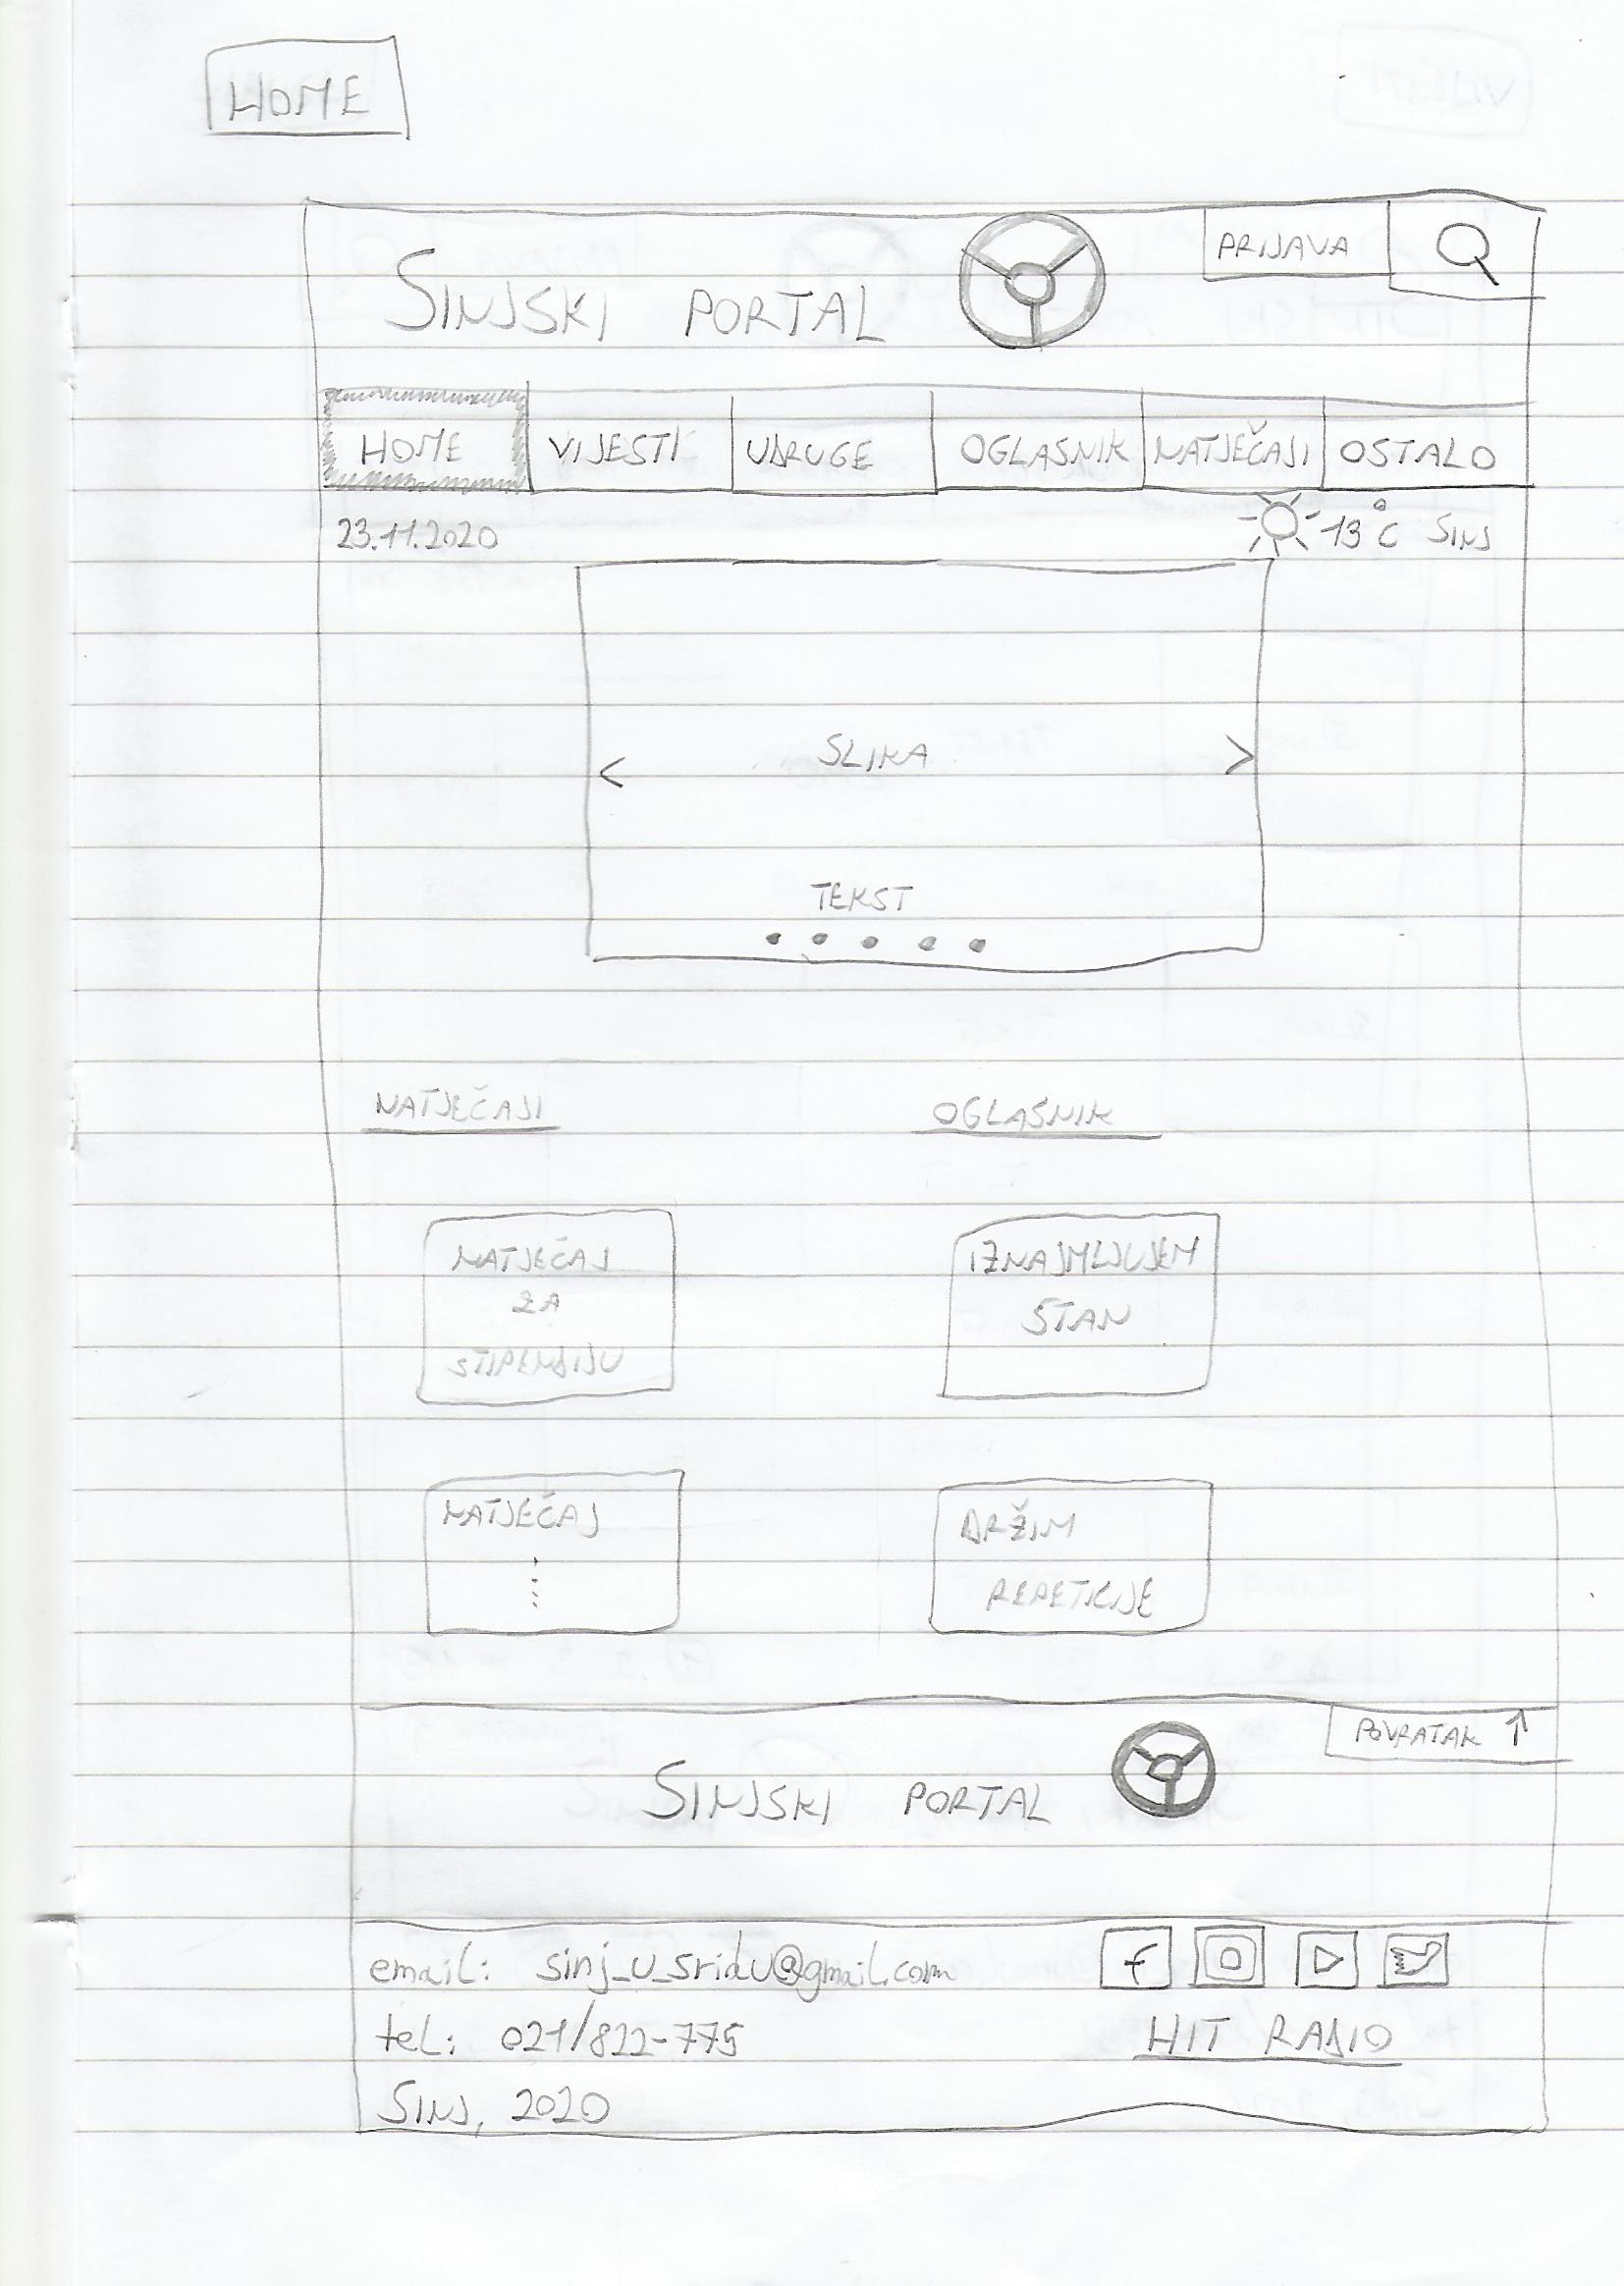 HOME
SINJSKI PORTAL
PRIJAVA
HOME VIJESTI UDRUGE OGLASNIK NATJEČAJI OSTALO
23.11.2020 13°C SINJ
< SLIKA >
TEKST
NATJEČAJI OGLASNIK
NATJEČAJ
ZA
STIPENDIJU
IZNAJMLJUJEM
STAN
NATJEČAJ
DRŽIM
REPETICIJE
POVRATAK ↑
SINJSKI PORTAL
email: sinj_u_sridu@gmail.com
tel: 021/822-775
HIT RADIO
SINJ, 2020